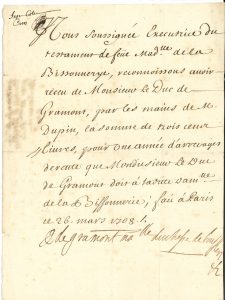 Nous soussignée Executrice du
testament de feüe Mad.lle de la
Bissonnerye, reconnoissons avoir
receu de Monsieur Le Duc de
Gramont, par les mains de M.
Dupin, la somme de trois cent
livres, pour une année d'arrerages
de rente que Monsieur Le Duc
de Gramont doit à
de la Bissonnerie; fait à Paris
ce 26. mars 1708.
de gramont